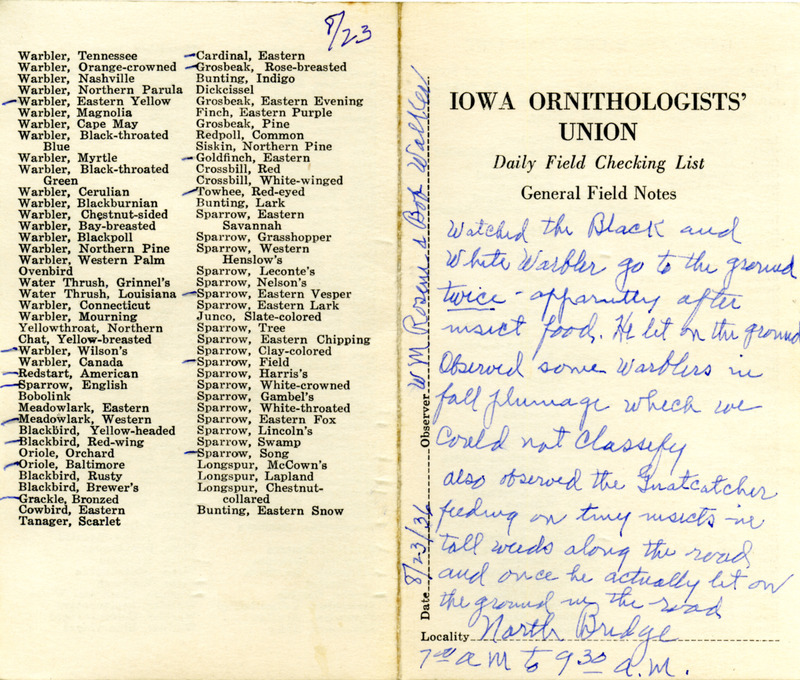 8/23
Warbler, Tennessee
Warbler, Orange-crowned
Warbler, Nashville
Warbler, Northern Parula
Warbler, Eastern Yellow
Warbler, Magnolia
Warbler, Cape May
Warbler, Black-throated
Blue
Warbler, Myrtle
Warbler, Black-throated
Green
Warbler, Cerulian
Warbler, Blackburnian
Warbler, Chestnut-sided
Warbler, Bay-breasted
Warbler, Blackpoll
Warbler, Northern Pine
Warbler, Western Palm
Ovenbird
Water Thrush, Grinnel's
Water Thrush, Louisiana
Warbler, Connecticut
Warbler, Mourning
Yellowthroat, Northern
Chat, Yellow-breasted
Warbler, Wilson's
Warbler, Canada
Redstart, American
Sparrow, English
Bobolink
Meadowlark, Eastern
Meadowlark, Western
Blackbird, Yellow-headed
Blackbird, Red-wing
Oriole, Orchard
Oriole, Baltimore
Blackbird, Rusty
Blackbird, Brewer's
Grackle, Bronzed
Cowbird, Eastern
Tanager, Scarlet
Cardinal, Eastern
Grosbeak, Rose-breasted
Bunting, Indigo
Dickcissel
Grosbeak, Eastern Evening
Finch, Eastern Purple
Grosbeak, Pine
Redpoll, Common
Siskin, Northern Pine
Goldfinch, Eastern
Crossbill, Red
Crossbill, White-winged
Towhee, Red-eyed
Bunting, Lark
Sparrow, Eastern
Savannah
Sparrow, Grasshopper
Sparrow, Western
Henslow's
Sparrow, Leconte's
Sparrow, Nelson's
Sparrow, Eastern Vesper
Sparrow, Eastern Lark
Junco, Slate-colored
Sparrow, Tree
Sparrow, Eastern Chipping
Sparrow, Clay-colored
Sparrow, Field
Sparrow, Harris's
Sparrow, White-crowned
Sparrow, Gambel's
Sparrow, White-throated
Sparrow, Eastern Fox
Sparrow, Lincoln's
Sparrow, Swamp
Sparrow, Song
Longspur, McCown's
Longspur, Lapland
Longspur, Chestnut-
collared
Bunting, Eastern Snow
Date 8/23/36 Observer W M Rosene & Bob Walker
IOWA ORNITHOLOGISTS'
UNION
Daily Field Checking List
General Field Notes
Watched the Black and
White Warbler go to the ground
twice - apparntly after
insect food. He lit on the ground
Observed some Warblers in
fall plumage which we
Could not Classify
also observed the Gnatcatcher
feeding on tiny insects in
tall weeds along the road
and once he actually lit on
the ground in the road
Locality North Bridge
7 00 a M to 9 30 a.m.